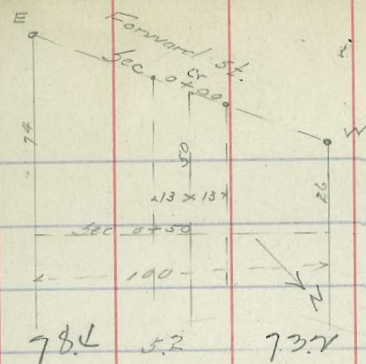 E
Forward St.
Sec 0+00
Cr
W
74
50
26
13 x 13
Sec 0+50
100
N
78.4 5.2 73.2